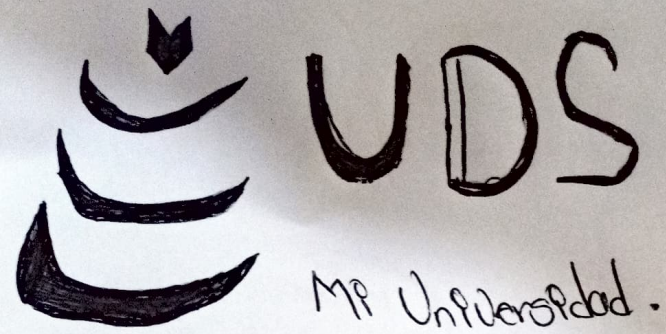 UDS
Mi Universidad.